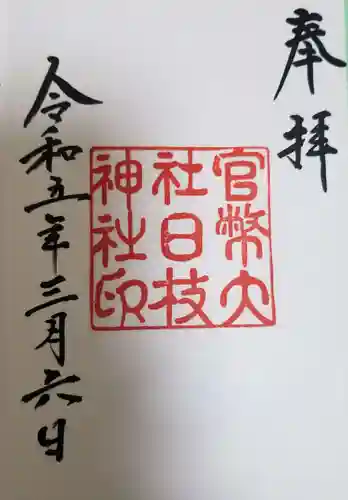 奉拝
官幣大
社日技
神社印
令和五年三月六日